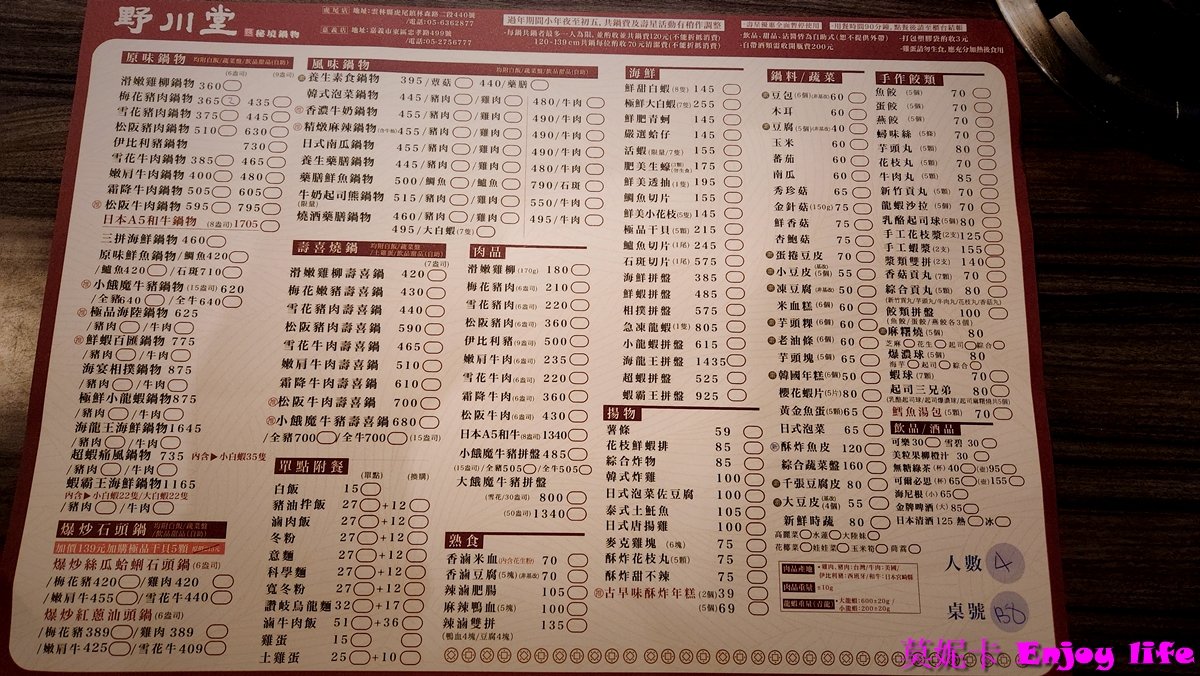 野川堂 秘境鍋物
虎尾店 地址:雲林縣虎尾鎮林森路二段440號
/電話:05-6362877
嘉義店 地址:嘉義市東區忠孝路499號
/電話:05-2756777
過年期間小年夜至初五,共鍋費及壽星活動有稍作調整
·每鍋共鍋者最多一人為限,並酌收並共鍋費120元(不能折抵消費)
120-139cm共鍋每位酌收70元清潔費(不能折抵消費)
·壽星優惠全面暫停使用 ·用餐時間90分鐘,點餐後請至櫃台結帳
·飲品、甜品、沾醬皆為自助式(恕不提供外帶) ·打包塑膠袋酌收3元
·自帶酒類需收開瓶費200元 ·雞蛋請勿生食,應充分加熱後食用
原味鍋物 均附白飯/蔬菜盤/飲品甜品(自助)
(6盎司) (9盎司)
滑嫩雞柳鍋物 360
梅花豬肉鍋物 365 435
雪花豬肉鍋物 375 445
松阪豬肉鍋物 510 630
伊比利豬鍋物 730
雪花牛肉鍋物 385 465
嫩肩牛肉鍋物 400 480
霜降牛肉鍋物 505 605
松阪牛肉鍋物 595 795
日本A5和牛鍋物 (8盎司)1705
三拼海鮮鍋物 460
原味鮮魚鍋物/鯛魚420
/鱸魚420 /石斑710
小餓魔牛豬鍋物(15盎司)620
/全豬640 /全牛640
極品海陸鍋物 625
/豬肉 /牛肉
鮮蝦百匯鍋物 775
/豬肉 /牛肉
海宴相撲鍋物 875
/豬肉 /牛肉
極鮮小龍蝦鍋物875
/豬肉 /牛肉
海龍王海鮮鍋物1645
/豬肉 /牛肉
超蝦痛風鍋物 735 內含▶小白蝦35隻
/豬肉 /牛肉
蝦霸王海鮮鍋物1165
內含▶小白蝦22隻/大白蝦22隻
/豬肉 /牛肉
爆炒石頭鍋 均附白飯/蔬菜盤/飲品甜品(自助)
加價139元加購極品干貝5顆
爆炒絲瓜蛤蜊石頭鍋(6盎司)
/梅花豬420 /雞肉 420
/嫩肩牛455 /雪花牛440
爆炒紅蔥油頭鍋(6盎司)
/梅花豬389 /雞肉 389
/嫩肩牛425 /雪花牛409
風味鍋物 均附白飯/蔬菜盤/飲品甜品(自助)
養生素食鍋物 395/蕈菇 440/藥膳
韓式泡菜鍋物 445/豬肉 /雞肉 480/牛肉
香濃牛奶鍋物 455/豬肉 /雞肉 490/牛肉
精燉麻辣鍋物 455/豬肉 /雞肉 490/牛肉
日式南瓜鍋物 455/豬肉 /雞肉 490/牛肉
養生藥膳鍋物 445/豬肉 /雞肉 480/牛肉
藥膳鮮魚鍋物 500/鯛魚 /鱸魚 790/石斑
牛奶起司熊鍋物 515/豬肉 /雞肉 550/牛肉
(限量)
燒酒藥膳鍋物 460/豬肉 /雞肉 495/牛肉
495/大白蝦(7隻)
壽喜燒鍋 均附白飯/蔬菜盤/土雞蛋/飲品甜品(自助)
(7盎司)
滑嫩雞柳壽喜鍋 420
梅花嫩豬壽喜鍋 430
雪花豬肉壽喜鍋 440
松阪豬肉壽喜鍋 590
雪花牛肉壽喜鍋 465
嫩肩牛肉壽喜鍋 510
霜降牛肉壽喜鍋 610
松阪牛肉壽喜鍋 700
小餓魔牛豬壽喜鍋680
/全豬700 /全牛700 (15盎司)
單點附餐 (單點) (換購)
白飯 15
豬油拌飯 27 +12
滷肉飯 27 +12
冬粉 27 +12
意麵 27 +12
科學麵 27 +12
寬冬粉 27 +12
讚岐烏龍麵 32 +17
滷牛肉飯 51 +36
雞蛋 15
土雞蛋 25 +10
肉品
滑嫩雞柳(170g) 180
梅花豬肉(6盎司) 210
雪花豬肉(6盎司) 220
松阪豬肉(6盎司) 360
伊比利豬(9盎司) 500
嫩肩牛肉(6盎司) 235
雪花牛肉(6盎司) 220
霜降牛肉(6盎司) 360
松阪牛肉(6盎司) 430
日本A5和牛(8盎司)1340
小餓魔牛豬拼盤485
(15盎司)/全豬505 /全牛505
大餓魔牛豬拼盤
(雪花/30盎司) 800
(50盎司)1340
熟食
香滷米血(內含花生粉) 70
香滷豆腐(5塊) 70
辣滷肥腸 105
麻辣鴨血(5塊) 100
辣滷雙拼 135
(鴨血4塊/豆腐4塊)
海鮮
鮮甜白蝦(8隻) 145
極鮮大白蝦(7隻) 255
鮮肥青蚵 145
嚴選蛤仔 145
活蝦(限量/7隻) 155
肥美生蠔 175
鮮美透抽(1隻) 195
鯛魚切片 155
鮮美小花枝(5隻) 145
極品干貝(5顆) 215
鱸魚切片(1尾) 245
石斑切片(1尾) 575
海鮮拼盤 385
鮮蝦拼盤 485
相撲拼盤 575
急凍龍蝦(1隻) 805
小龍蝦拼盤 615
海龍王拼盤 1435
超蝦拼盤 525
蝦霸王拼盤 925
揚物
薯條 59
花枝鮮蝦排 85
綜合炸物 85
韓式炸雞 100
日式泡菜佐豆腐 100
泰式土魠魚 105
日式唐揚雞 100
麥克雞塊 (6塊) 75
酥炸花枝丸(5顆) 75
酥炸甜不辣 75
古早味酥炸年糕(2個)39
(5個)69
鍋料/蔬菜
豆包(6個) 60
木耳 60
豆腐(5個) 40
玉米 60
番茄 60
南瓜 60
秀珍菇 65
金針菇(150g) 75
鮮香菇 75
杏鮑菇 75
蛋捲豆皮 70
小豆皮(5個) 55
凍豆腐 50
米血糕(6個) 60
芋頭粿(6個) 60
老油條(6個) 60
芋頭塊(5個) 65
韓國年糕(6個)50
櫻花蝦片(5片)80
黃金魚蛋(5顆)65
日式泡菜 65
酥炸魚皮 120
綜合蔬菜盤160
千張豆腐皮 80
大豆皮(4個) 55
新鮮時蔬 80
高麗菜 /水蓮 /大陸妹
花椰菜 /娃娃菜 /玉米筍 /茼蒿
手作餃類
魚餃 (5個) 70
蛋餃 (5個) 70
燕餃 (5個) 70
蟳味絲(5條) 70
芋頭丸(5顆) 80
花枝丸(5顆) 70
牛肉丸(5顆) 85
新竹貢丸(5顆) 70
龍蝦沙拉(5個) 70
乳酪起司球(5個)80
手工花枝漿(2支)125
手工蝦漿(2支) 155
漿類雙拼(2支) 140
香菇貢丸(7顆) 70
綜合貢丸(5顆) 70
(新竹貢丸/芋頭丸/牛肉丸/花枝丸/香菇丸)
餃類拼盤 100
(魚餃/蛋餃/燕餃各3個)
麻糬燒(5個) 80
芝麻 花生 起司 綜合
爆濃球(5顆) 80
海芋 起司 綜合
蝦球(7顆) 70
起司三兄弟 80
(乳酪起司球/起司爆濃球/起司麻糬燒共5個)
鱈魚湯包(5顆) 70
飲品/酒品
可樂30 雪碧 30
美粒果柳橙汁 30
無糖綠茶(杯)40 (壺)95
可爾必思(杯)65 (壺)155
海尼根(小)65
金牌啤酒(大)85
日本清酒125 熱 冰
肉品產地 ·雞肉、豬肉:台灣/牛肉:美國/
伊比利豬:西班牙/和牛:日本宮崎縣
肉品重量 ±10g
龍蝦重量(青龍) 大龍蝦:600±20g/
小龍蝦:200±20g
人數 4
桌號 B8
莫妮卡 Enjoy life